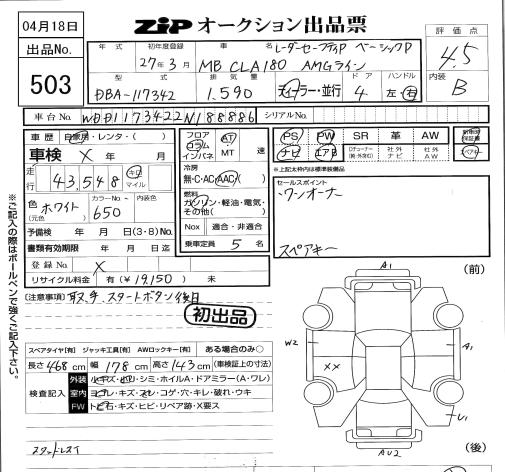 04月18日
ZIP オークション出品票
出品No.
503
評価点
4.5
内装
B
年式
初年度登録
車名
27年3月
MB CLA180 AMGライン
レーダーセーフティP ベーシックP
型式
排気量
ドア
ハンドル
DBA-117342
1.590
ディーラー・並行
4
左・右
車台No.
WDD1173422N188886
シリアルNo.
車歴
自家用・レンタ・( )
車検 × 年 月
走行
43,548
キロ
マイル
色
(元色)
ホワイト
カラーNo.
650
内装色
予備検 年 月 日(3・8)
書類有効期限 年 月 日迄
登録No.
×
リサイクル料金 有(¥19,150) 未
フロア
コラム
インパネ
AT
MT
速
冷房
無・C・AC・AAC( )
燃料
ガソリン・軽油・電気・
その他( )
Nox 適合・非適合
乗車定員 5 名
PS PW SR 革 AW
ナビ エアB
社外ナビ
社外AW
スペアキー
※上記太枠内は標準装備品
セールスポイント
ワンオーナー
スペアキー
(注意事項)
取、手、スタートボタン後日
初出品
スペアタイヤ[有] ジャッキ工具[有] AWロックキー[有] ある場合のみ○
長さ468cm 幅178cm 高さ143cm(車検証上の寸法)
検査記入
外装
小キズ・凹・シミ・ホイルA・ドアミラー(A・ワレ)
室内
ヨゴレ・キズ・スレ・コゲ・穴・キレ・破れ・ウキ
FW
トビ石・キズ・ヒビ・リペア跡・X要ス
スタットレスT
※ご記入の際はボールペンで強くご記入下さい。
A1
(前)
W2
××
A1
U1
AU2
(後)